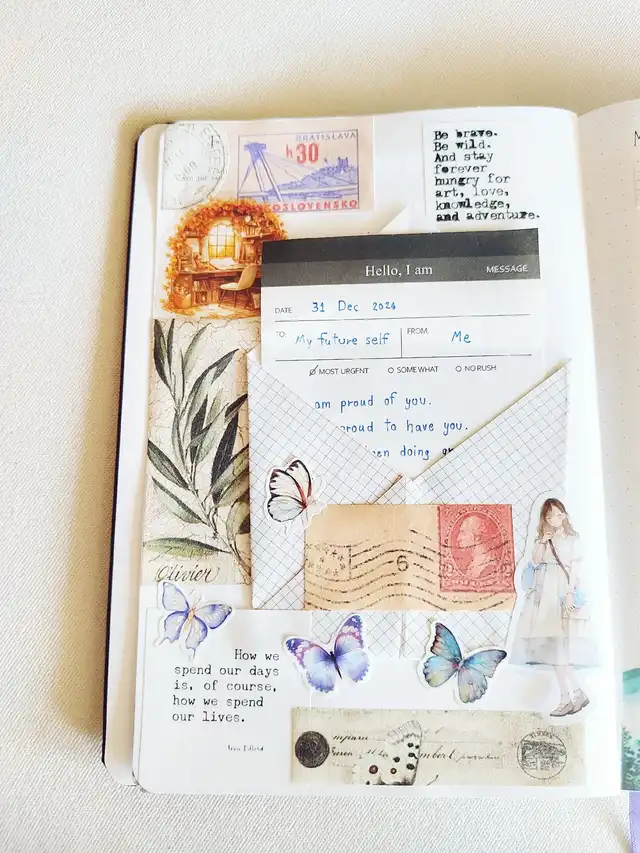 BRATISLAVA
h30
KOSLOVENSKO
Be brave.
Be wild.
And stay
forever
hungry for
art, love,
knowledge,
and adventure.
Hello, I am
MESSAGE
DATE 31 Dec 2024
TO. My future self
FROM. Me
MOST URGENT SOMEWHAT NO RUSH
am proud of you.
proud to have you.
been doing
6
Olivier
How we
spend our days
is, of course,
how we spend
our lives.